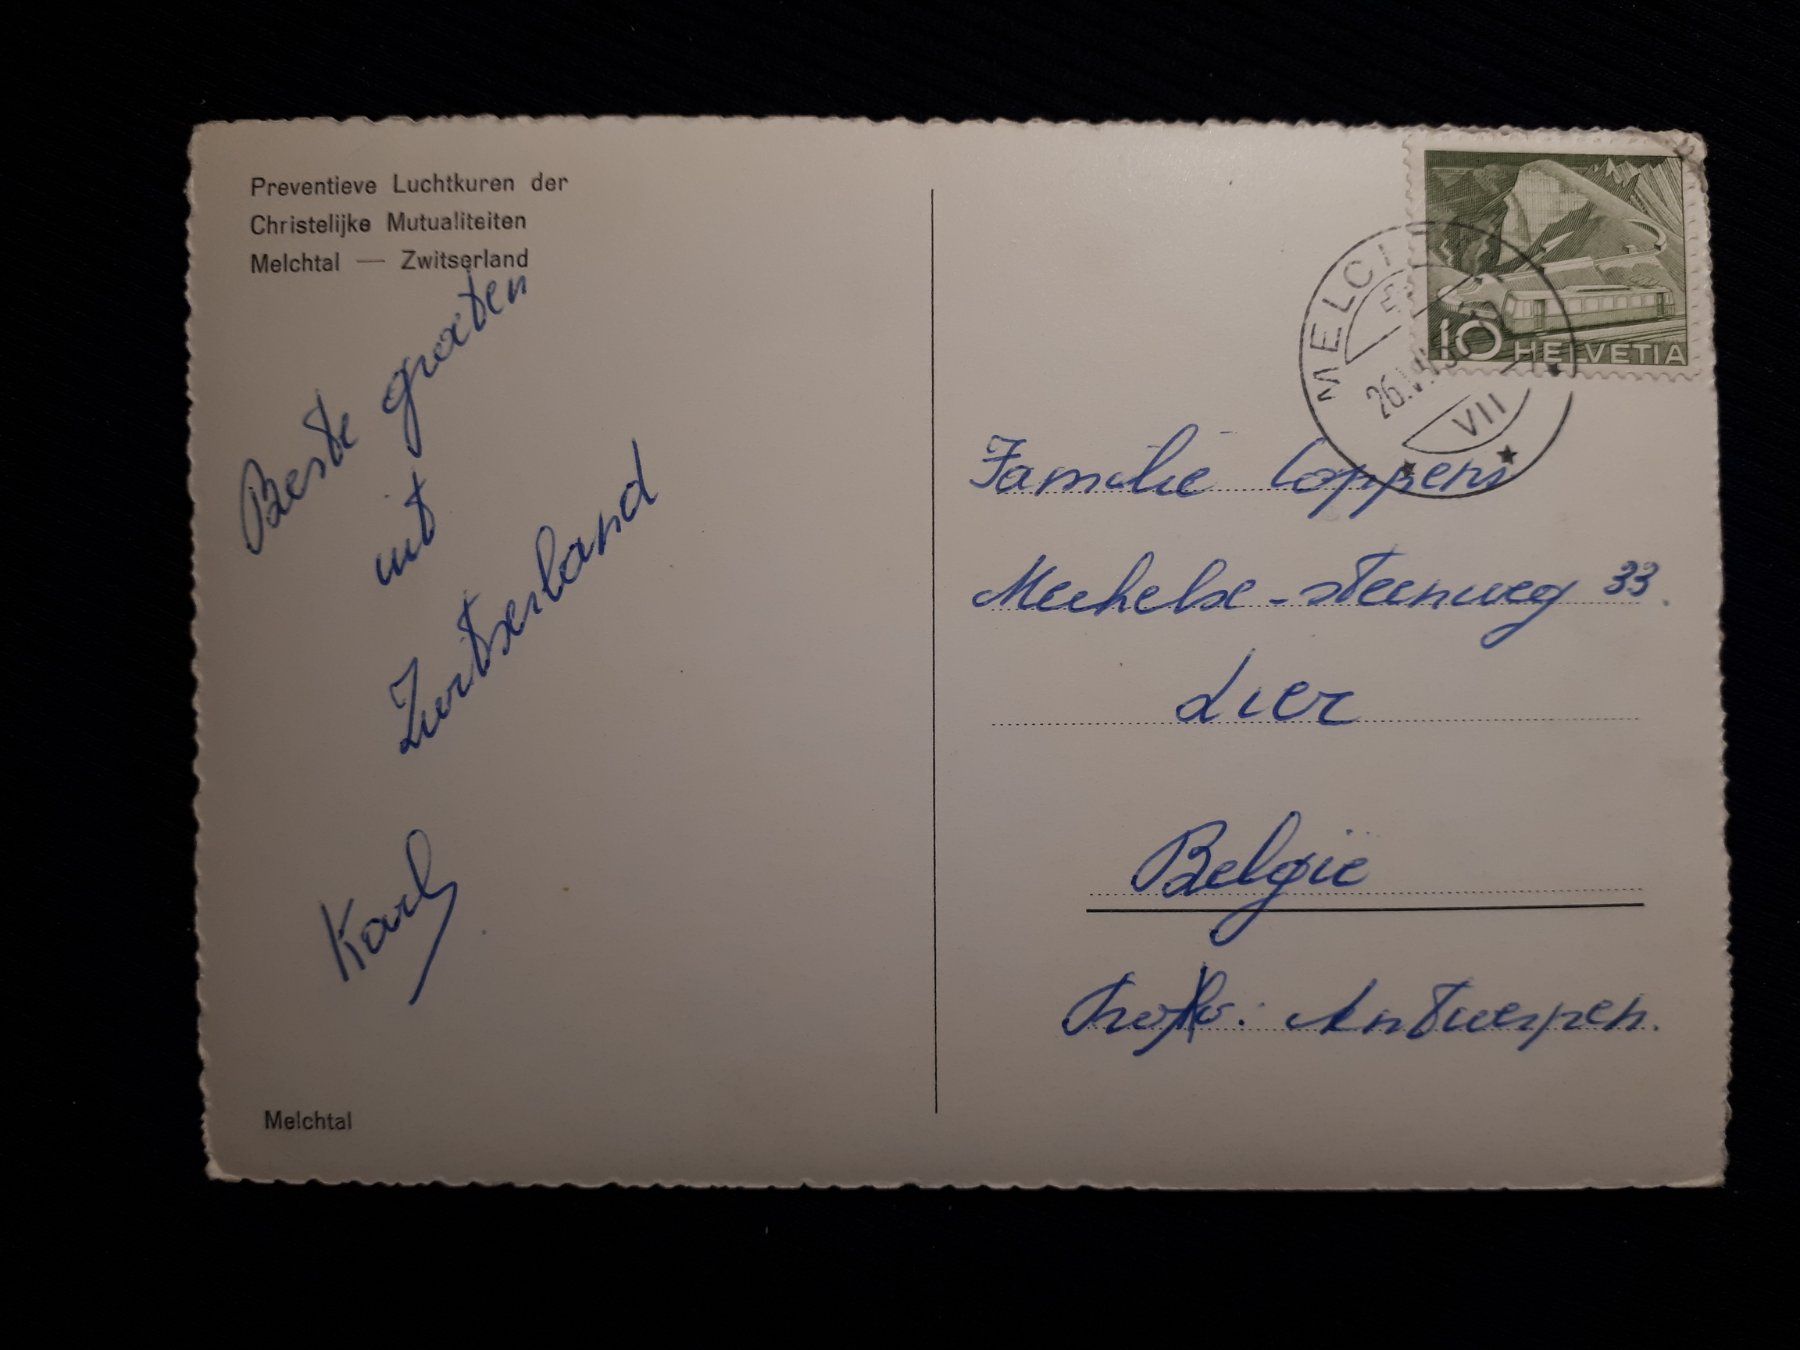 Preventieve Luchtkuren der
Christelijke Mutualiteiten
Melchtal — Zwitserland
Beste groeten
uit
Zwitserland
Karl
Melchtal
10 HELVETIA
VII
Familie Coppens
Mechelse-steenweg 33.
Lier
België
Antwerpen.